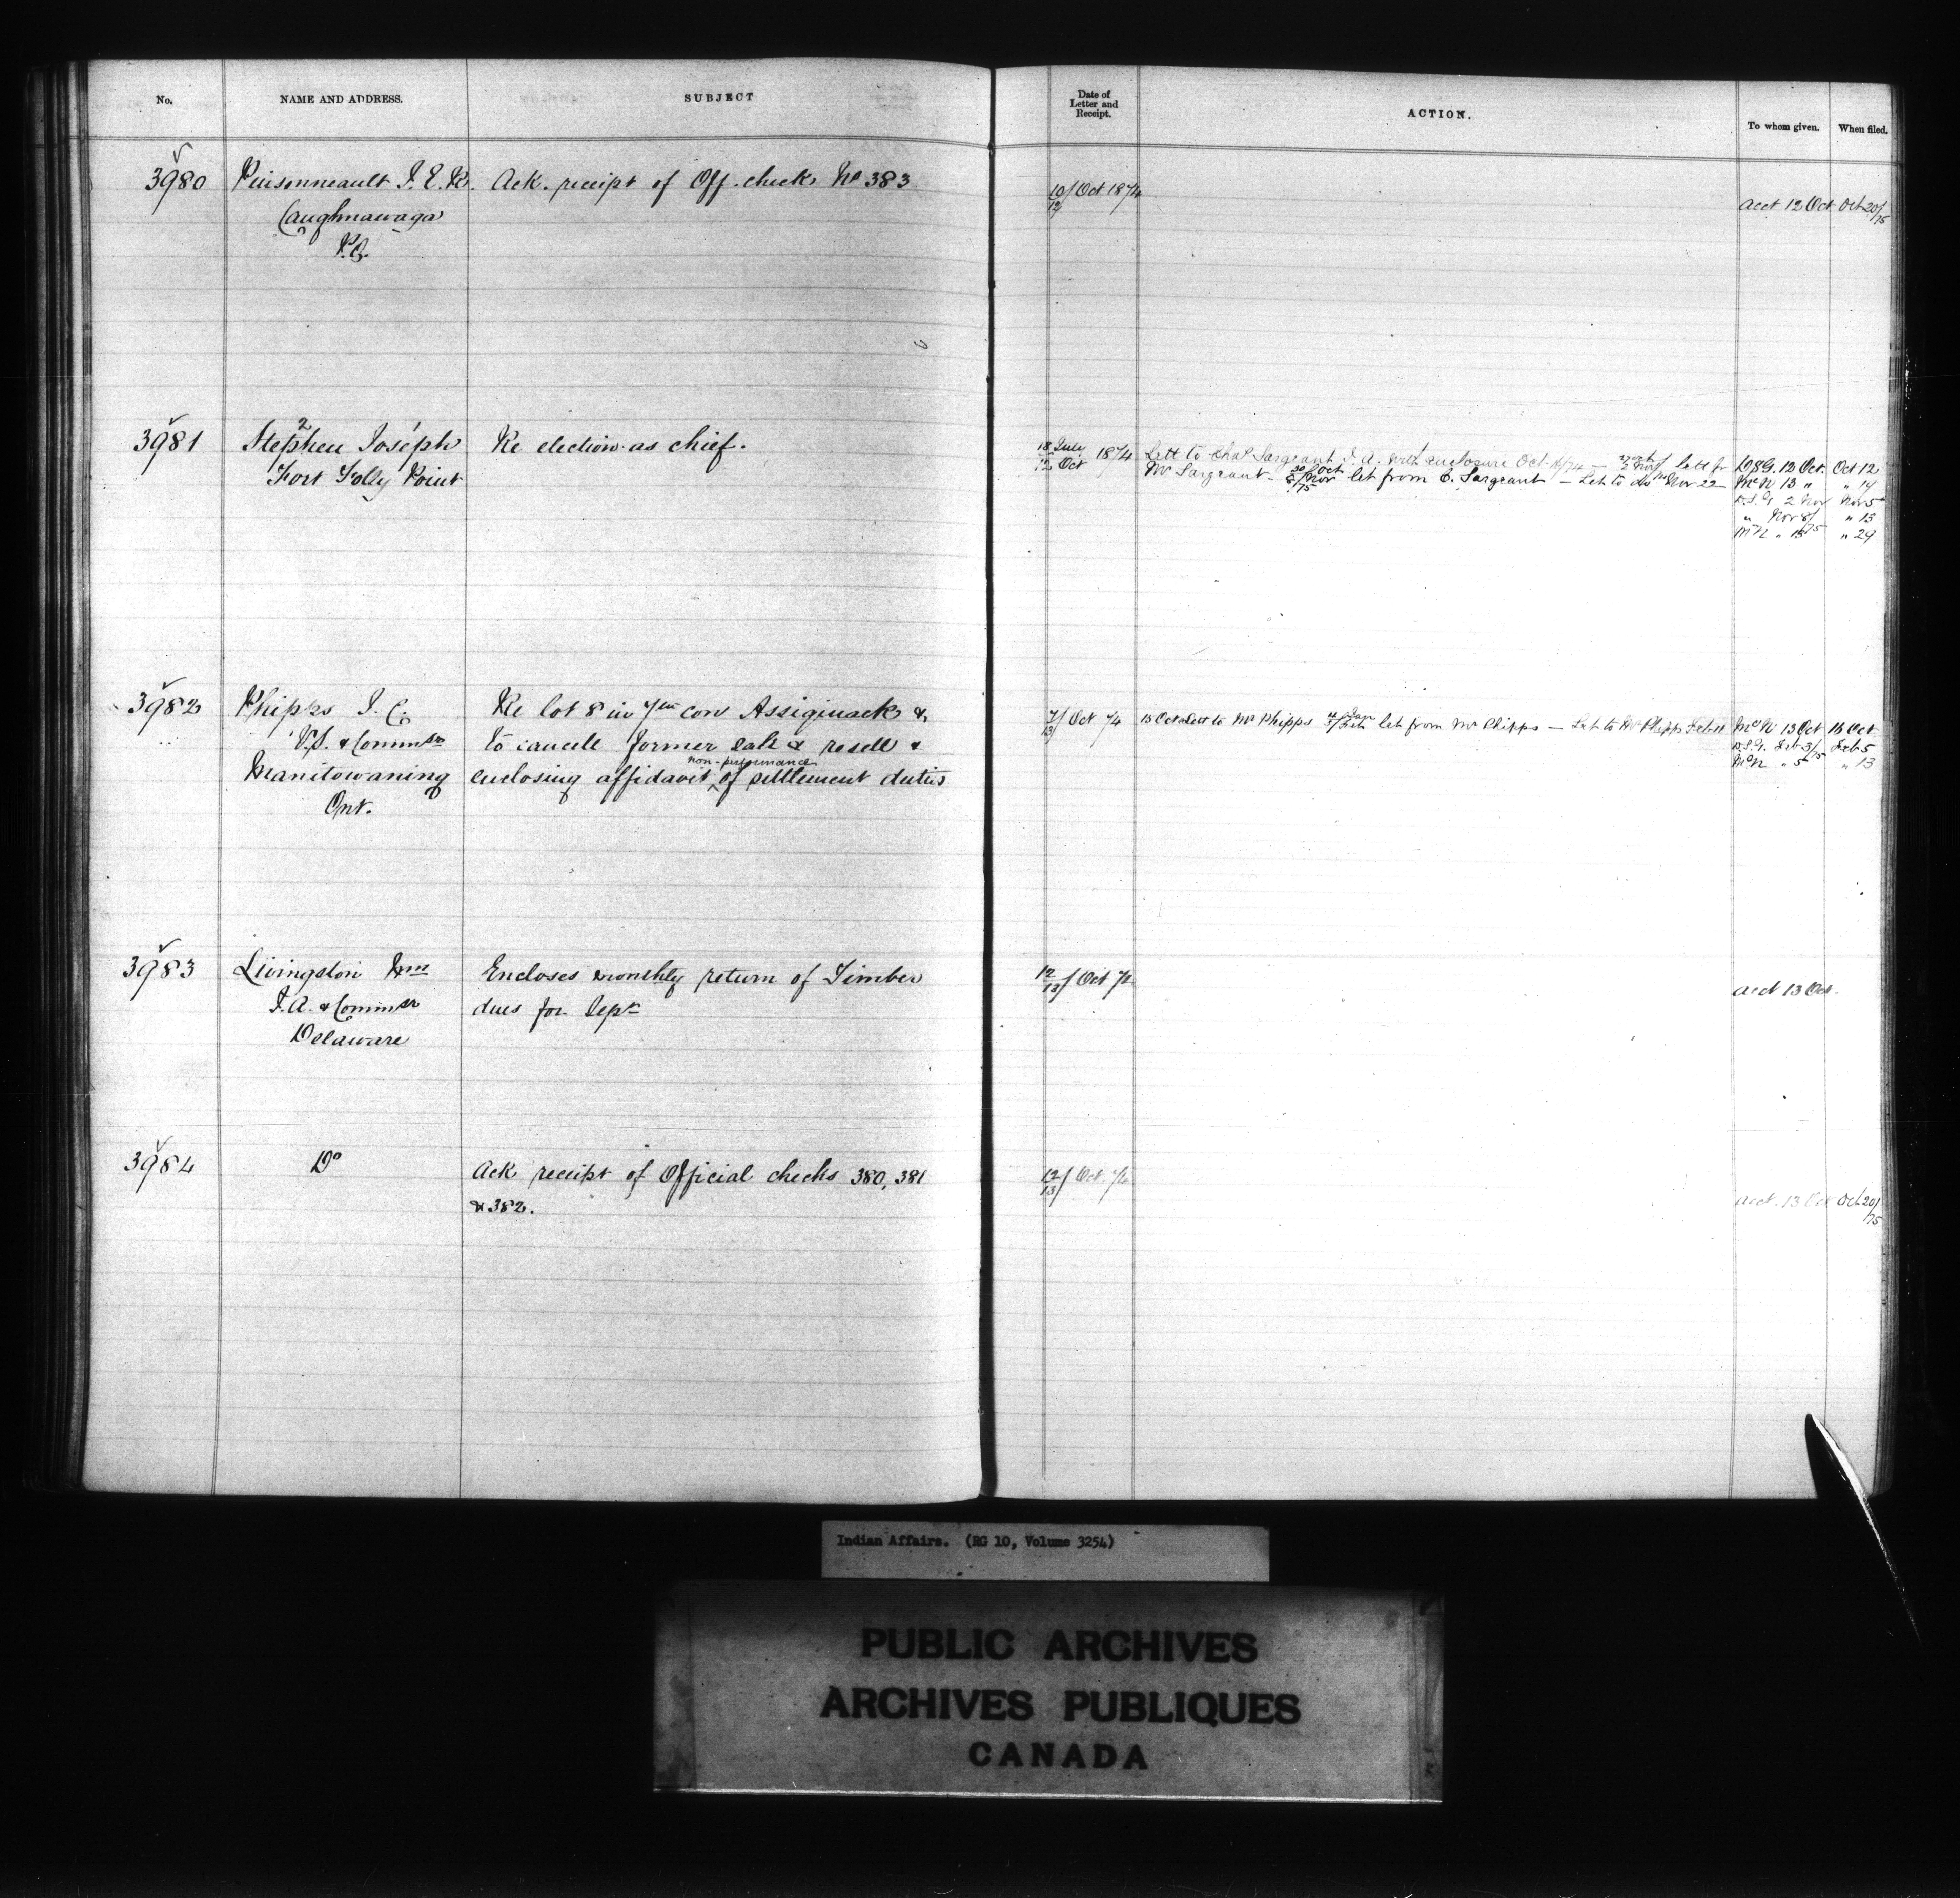 No. NAME AND ADDRESS. SUBJECT
Date of Letter and Receipt. ACTION. To whom given. When filed.
3980 Pinsonneault J. E. R. Ack. receipt of Off. check No 383 10/12 Oct 1874 Acct 12 Oct Oct 20/75
Caughnawaga
P.Q.
3981 Stephen Joseph 2 Re election as chief. 18 July 12 Oct 1874 Lett to Chas Sargeant I. A. with enclosure Oct 16/74 — 27 Oct 2 Nov / lett fr D.S.G. 12 Oct. Oct 12
Fort Folly Point Mr Sargeant - 30 Oct 8 Nov /75 let from C. Sargeant — Let to do Nov 22 McN 13 " " 17
D.S.G. 2 Nov Nov 5
" Nov 8/75 " 13
McN " 15 " 29
3982 Phipps J. C. Re lot 8 in 7th con Assiginack & 7/13 Oct 74 15 Oct Lett to Mr Phipps Jan Feb let from Mr Phipps — Let to Mr Phipps Feb 11 McN 13 Oct 16 Oct
V.S. & Commsr to cancele former sale & resell & D.S.G. Feb 3/75 Feb 5
Manitowaning enclosing affidavit of non-performance settlement duties McN " 5 " 13
Ont.
3983 Livingston Wm Encloses monthly return of Timber 12/13 Oct 74 Acct 13 Oct.
I.A. & Commsr dues for Sept
Delaware
3984 Do Ack receipt of Official checks 380, 381 12/13 Oct 74 Acct. 13 Oct Oct 20/75
& 382.
Indian Affairs. (RG 10, Volume 3254)
PUBLIC ARCHIVES
ARCHIVES PUBLIQUES
CANADA